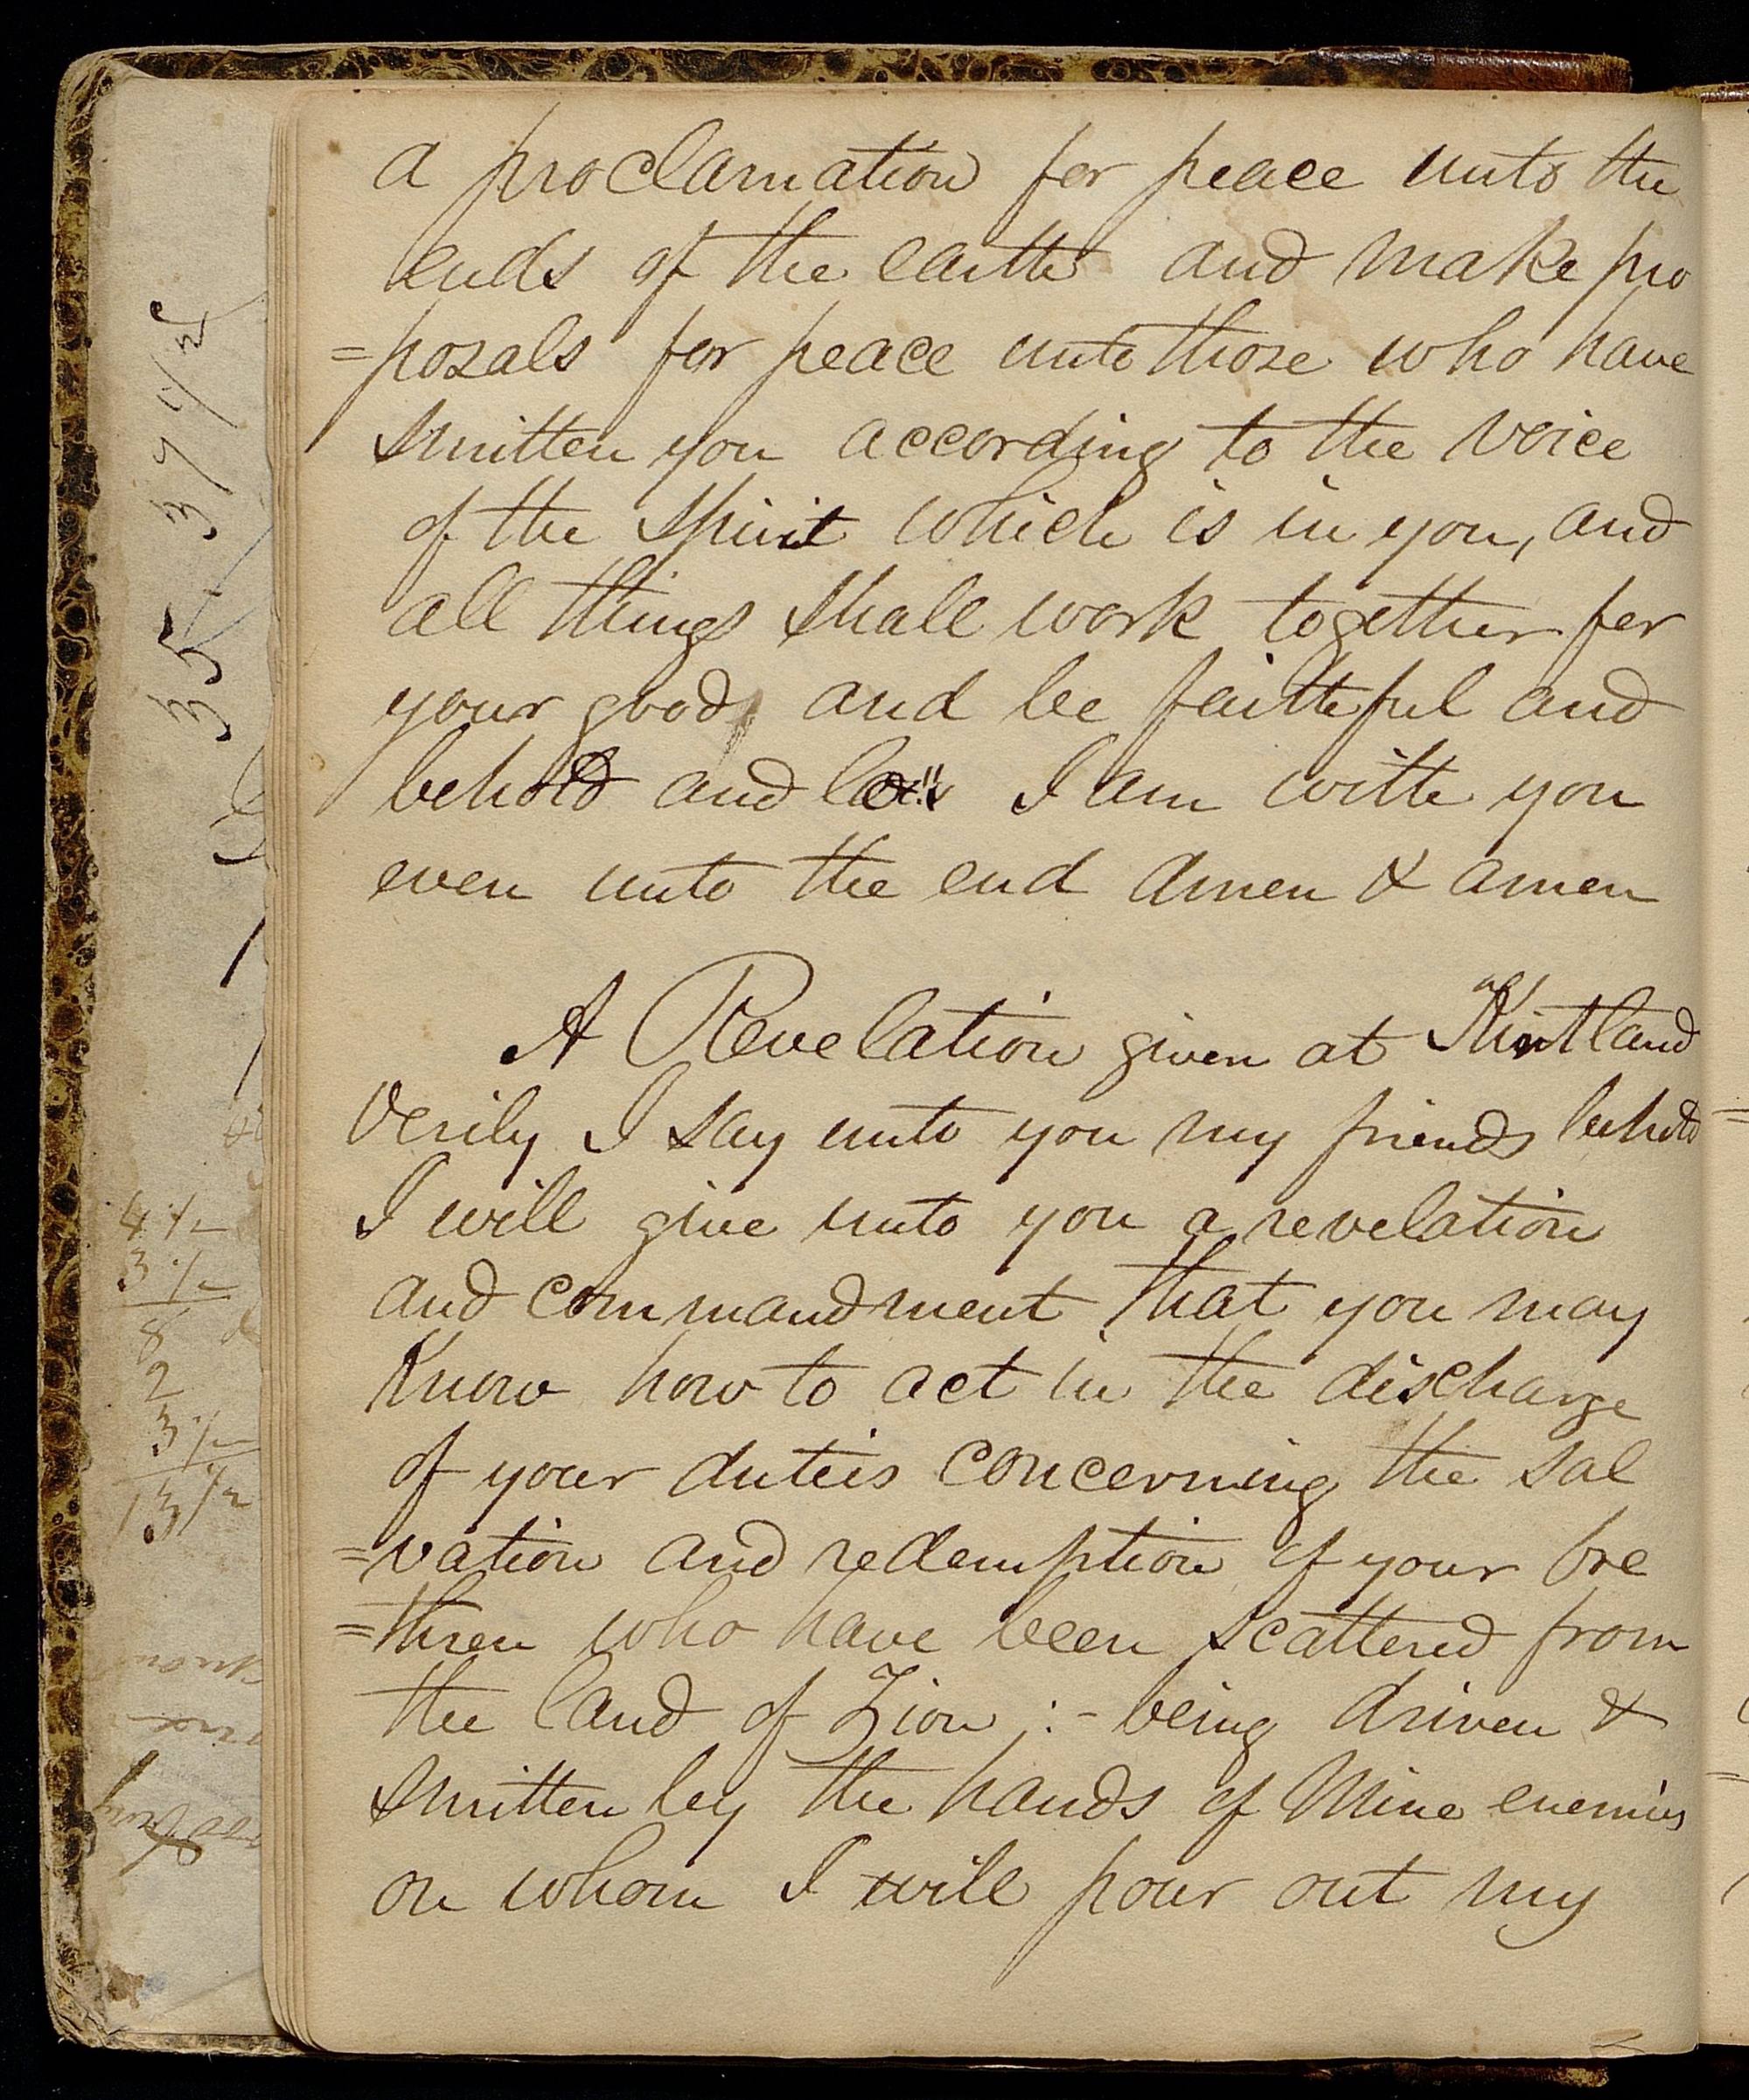 a proclamation for peace unto the
ends of the earth and make pro
=posals for peace unto those who have
smitten you according to the voice
of the spirit which is in you, and
all things shall work together for
your good, and be faithful and
behold and lo I am with you
even unto the end Amen & amen
A Revelation given at Kirtland
Verily I say unto you my friends behold
I will give unto you a revelation
and commandment that you may
know how to act in the discharge
of your duteis concerning the sal
=vation and redemption of your bre
=thren who have been scattered from
the land of Zion ;:- being driven &
smitten by the hands of Mine enemies
on whom I will pour out my
35 37 1/2
4 1/2
3 1/2
8
2
3 1/2
13 1/2